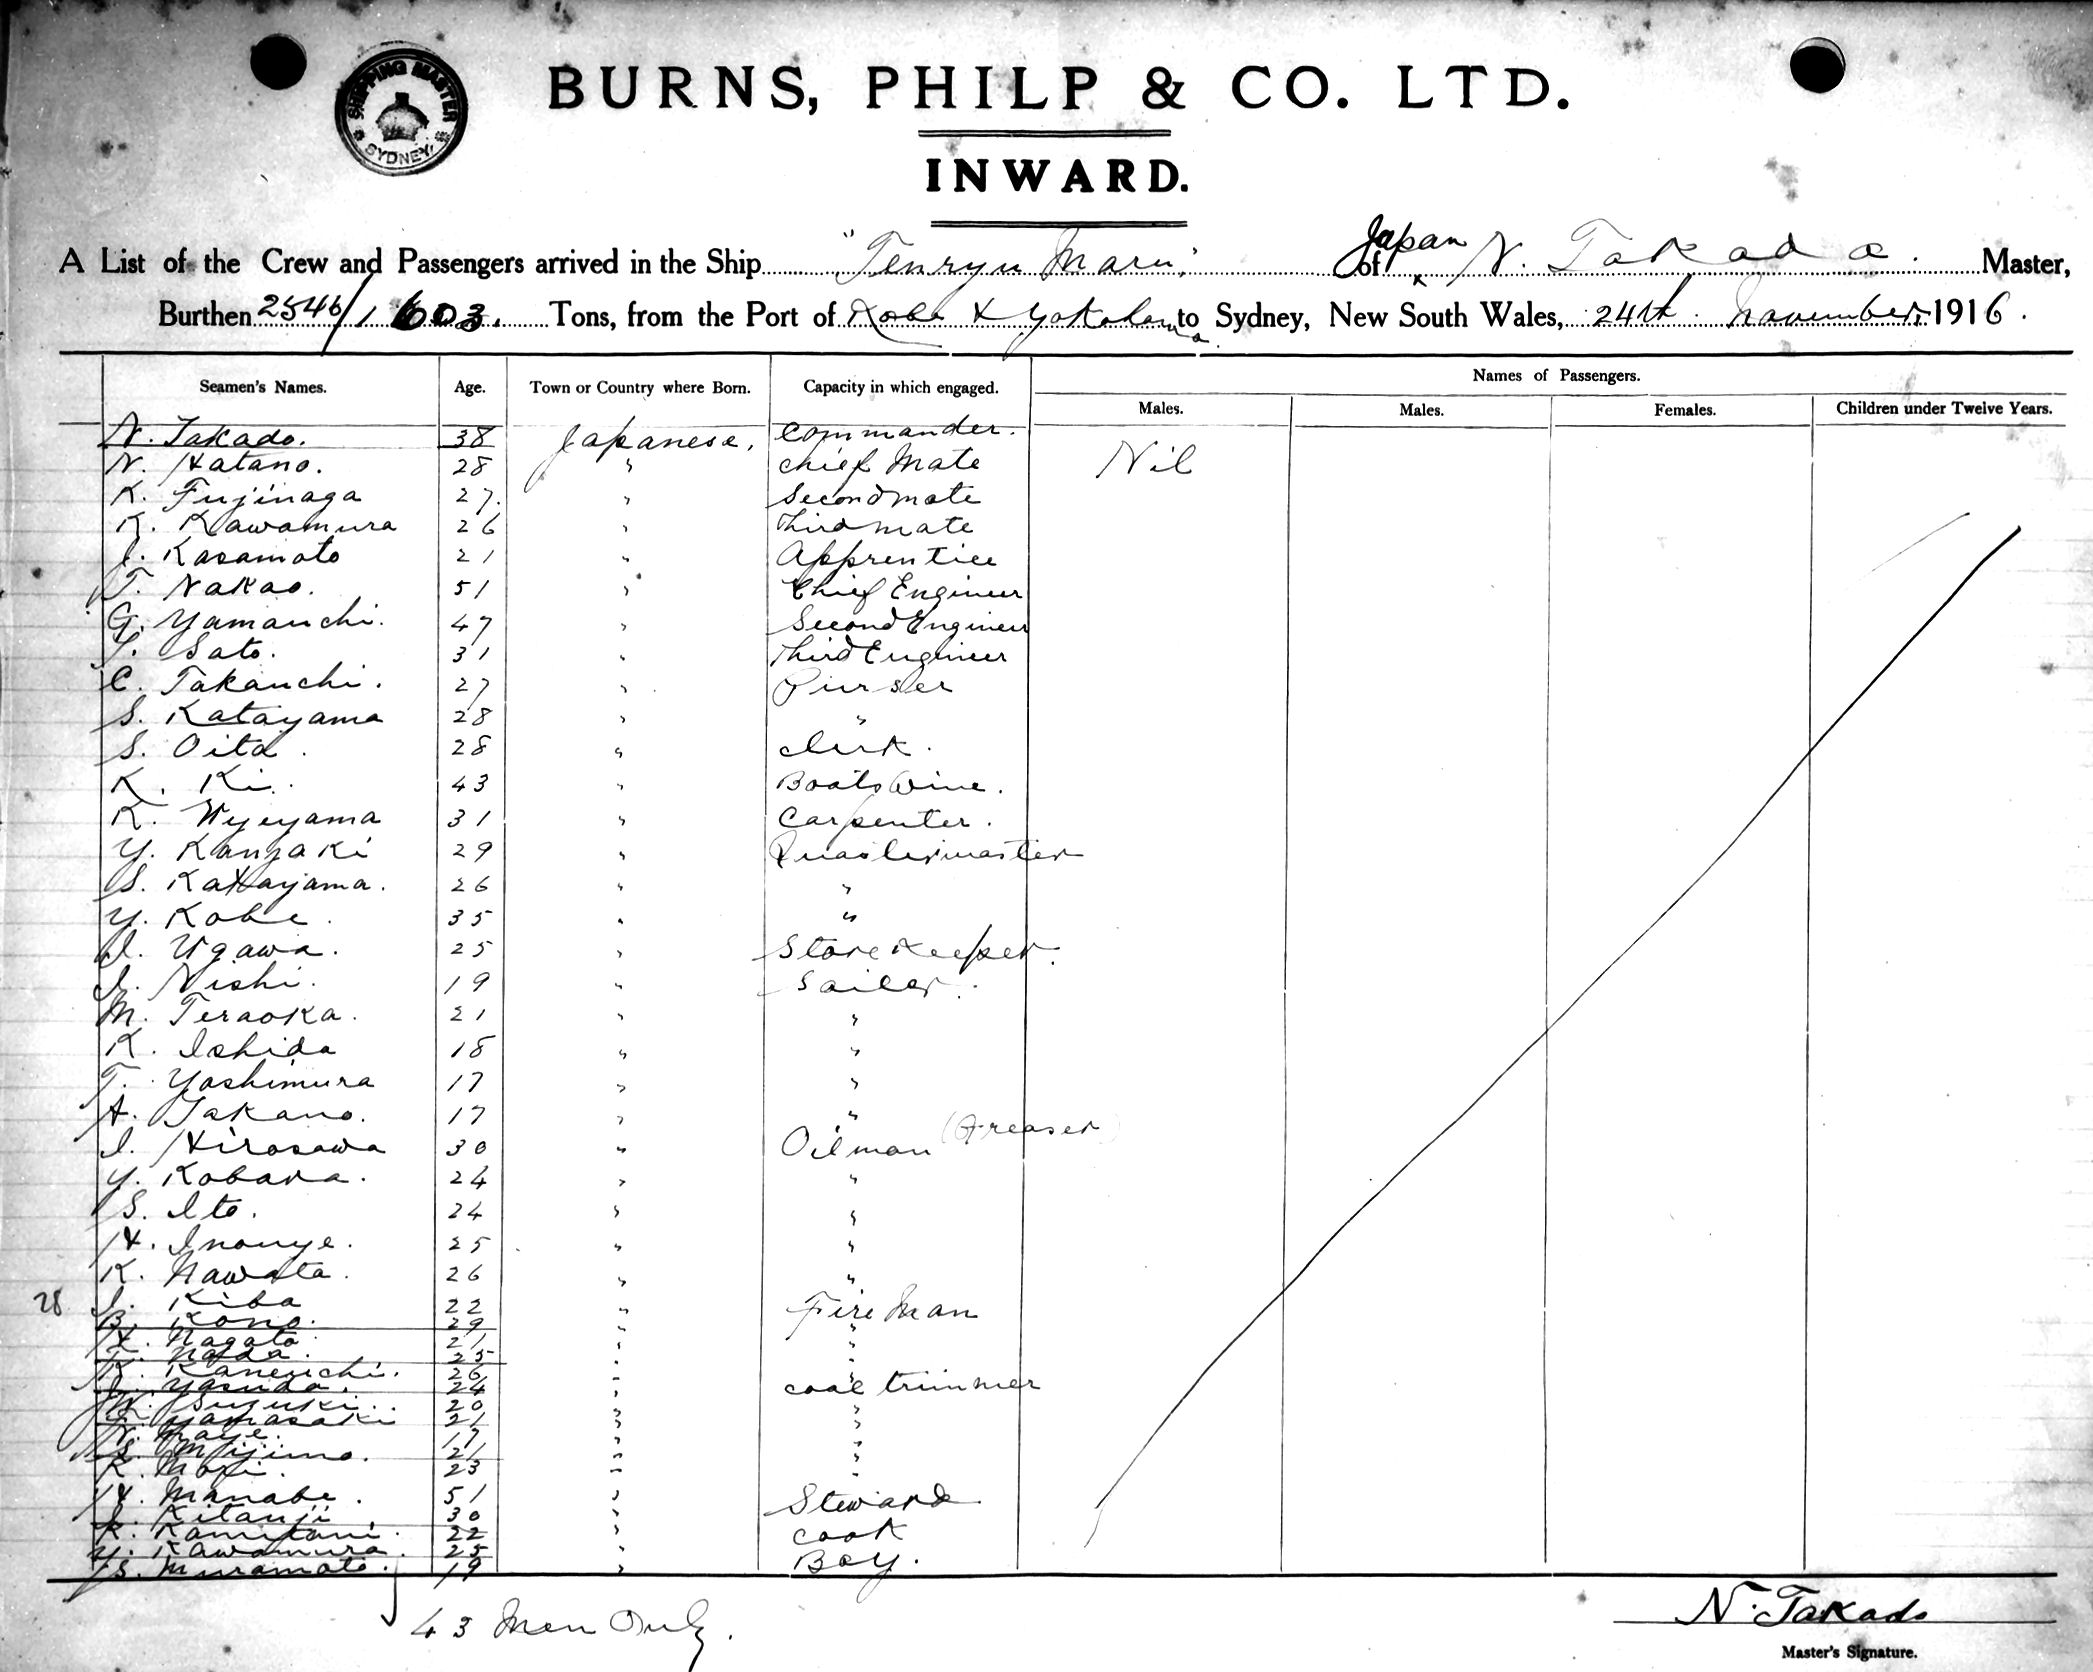 SHIPPING MASTER
SYDNEY.
BURNS, PHILP & CO. LTD.
INWARD.
A List of the Crew and Passengers arrived in the Ship "Tenryu Maru," of Japan N. Takada. Master,
Burthen 2546/1603. Tons, from the Port of Kobe & Yokohama to Sydney, New South Wales, 24th November, 1916.
Seamen's Names. Age. Town or Country where Born. Capacity in which engaged. Names of Passengers.
Males. Males. Females. Children under Twelve Years.
N. Takado. 38 Japanese, Commander.
N. Hatano. 28 " Chief Mate Nil
K. Fujinaga 27. " Second mate
K. Kawamura 26 " Third mate
I. Kasamoto 21 " Apprentice
T. Nakao. 51 " Chief Engineer
G. Yamauchi. 47 " Second Engineer
Sato. 31 " Third Engineer
C. Takauchi. 27 " Purser
S. Katayama 28 " "
S. Oita. 28 " Clerk.
K. Ki. 43 " Boatswine.
K. Uyeyama 31 " Carpenter.
Y. Kanzaki 29 " Quastermaster
S. Katayama. 26 " "
Y. Kobe. 35 " "
I. Ugawa. 25 " Store Keeper.
I. Nishi. 19 " Sailer.
M. Teraoka. 21 " "
K. Ishida 18 " "
T. Yoshimura 17 " "
A. Takano. 17 " "
I. Hirosawa 30 " Oilman (Greaser)
Y. Kobara. 24 " "
S. Ito. 24 " "
H. Inouye. 25 " "
K. Nawata. 26 " "
28 I. Kiba 22 " Fire Man
B. Kono. 29 " "
H. Nagato. 21 " "
Noda. 25 " "
K. Kaneuchi. 26 " "
Yasuda. 24 " coal trimmer
Suzuki. 20 " "
Yamasaki 21 " "
N. Maye. 17 " "
S. Mijima. 21 " "
K. Mori. 23 " "
H. Manabe. 51 " Steward
Kitauji 30 "
K. Kamitani. 22 " Cook
Y. Kawamura. 25 "
S. Muramoto. 19 " Boy.
43 Men Only.
N. Takado
Master's Signature.